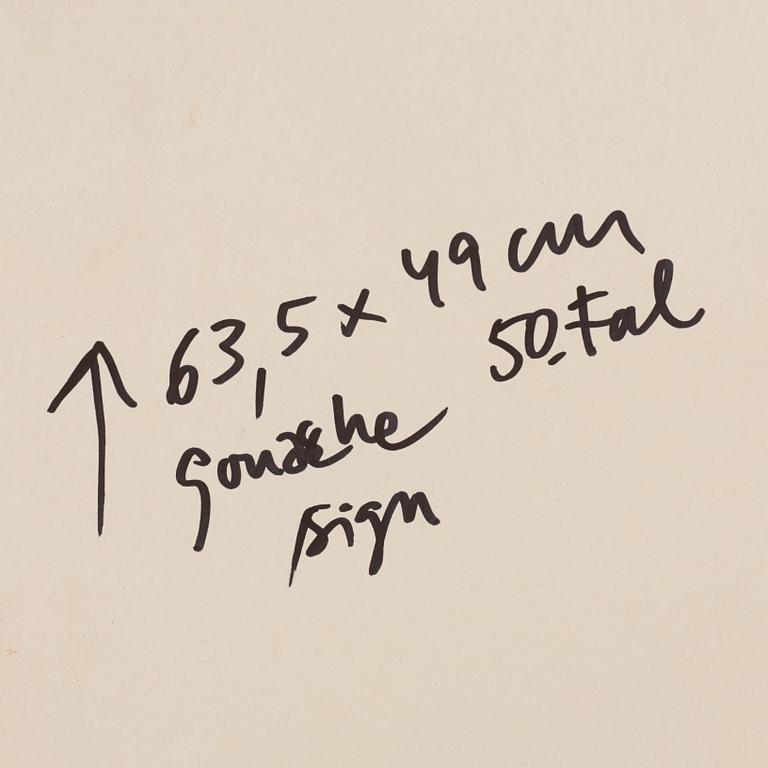 ↑ 63,5 x 49 cm
50.tal
gouache
sign